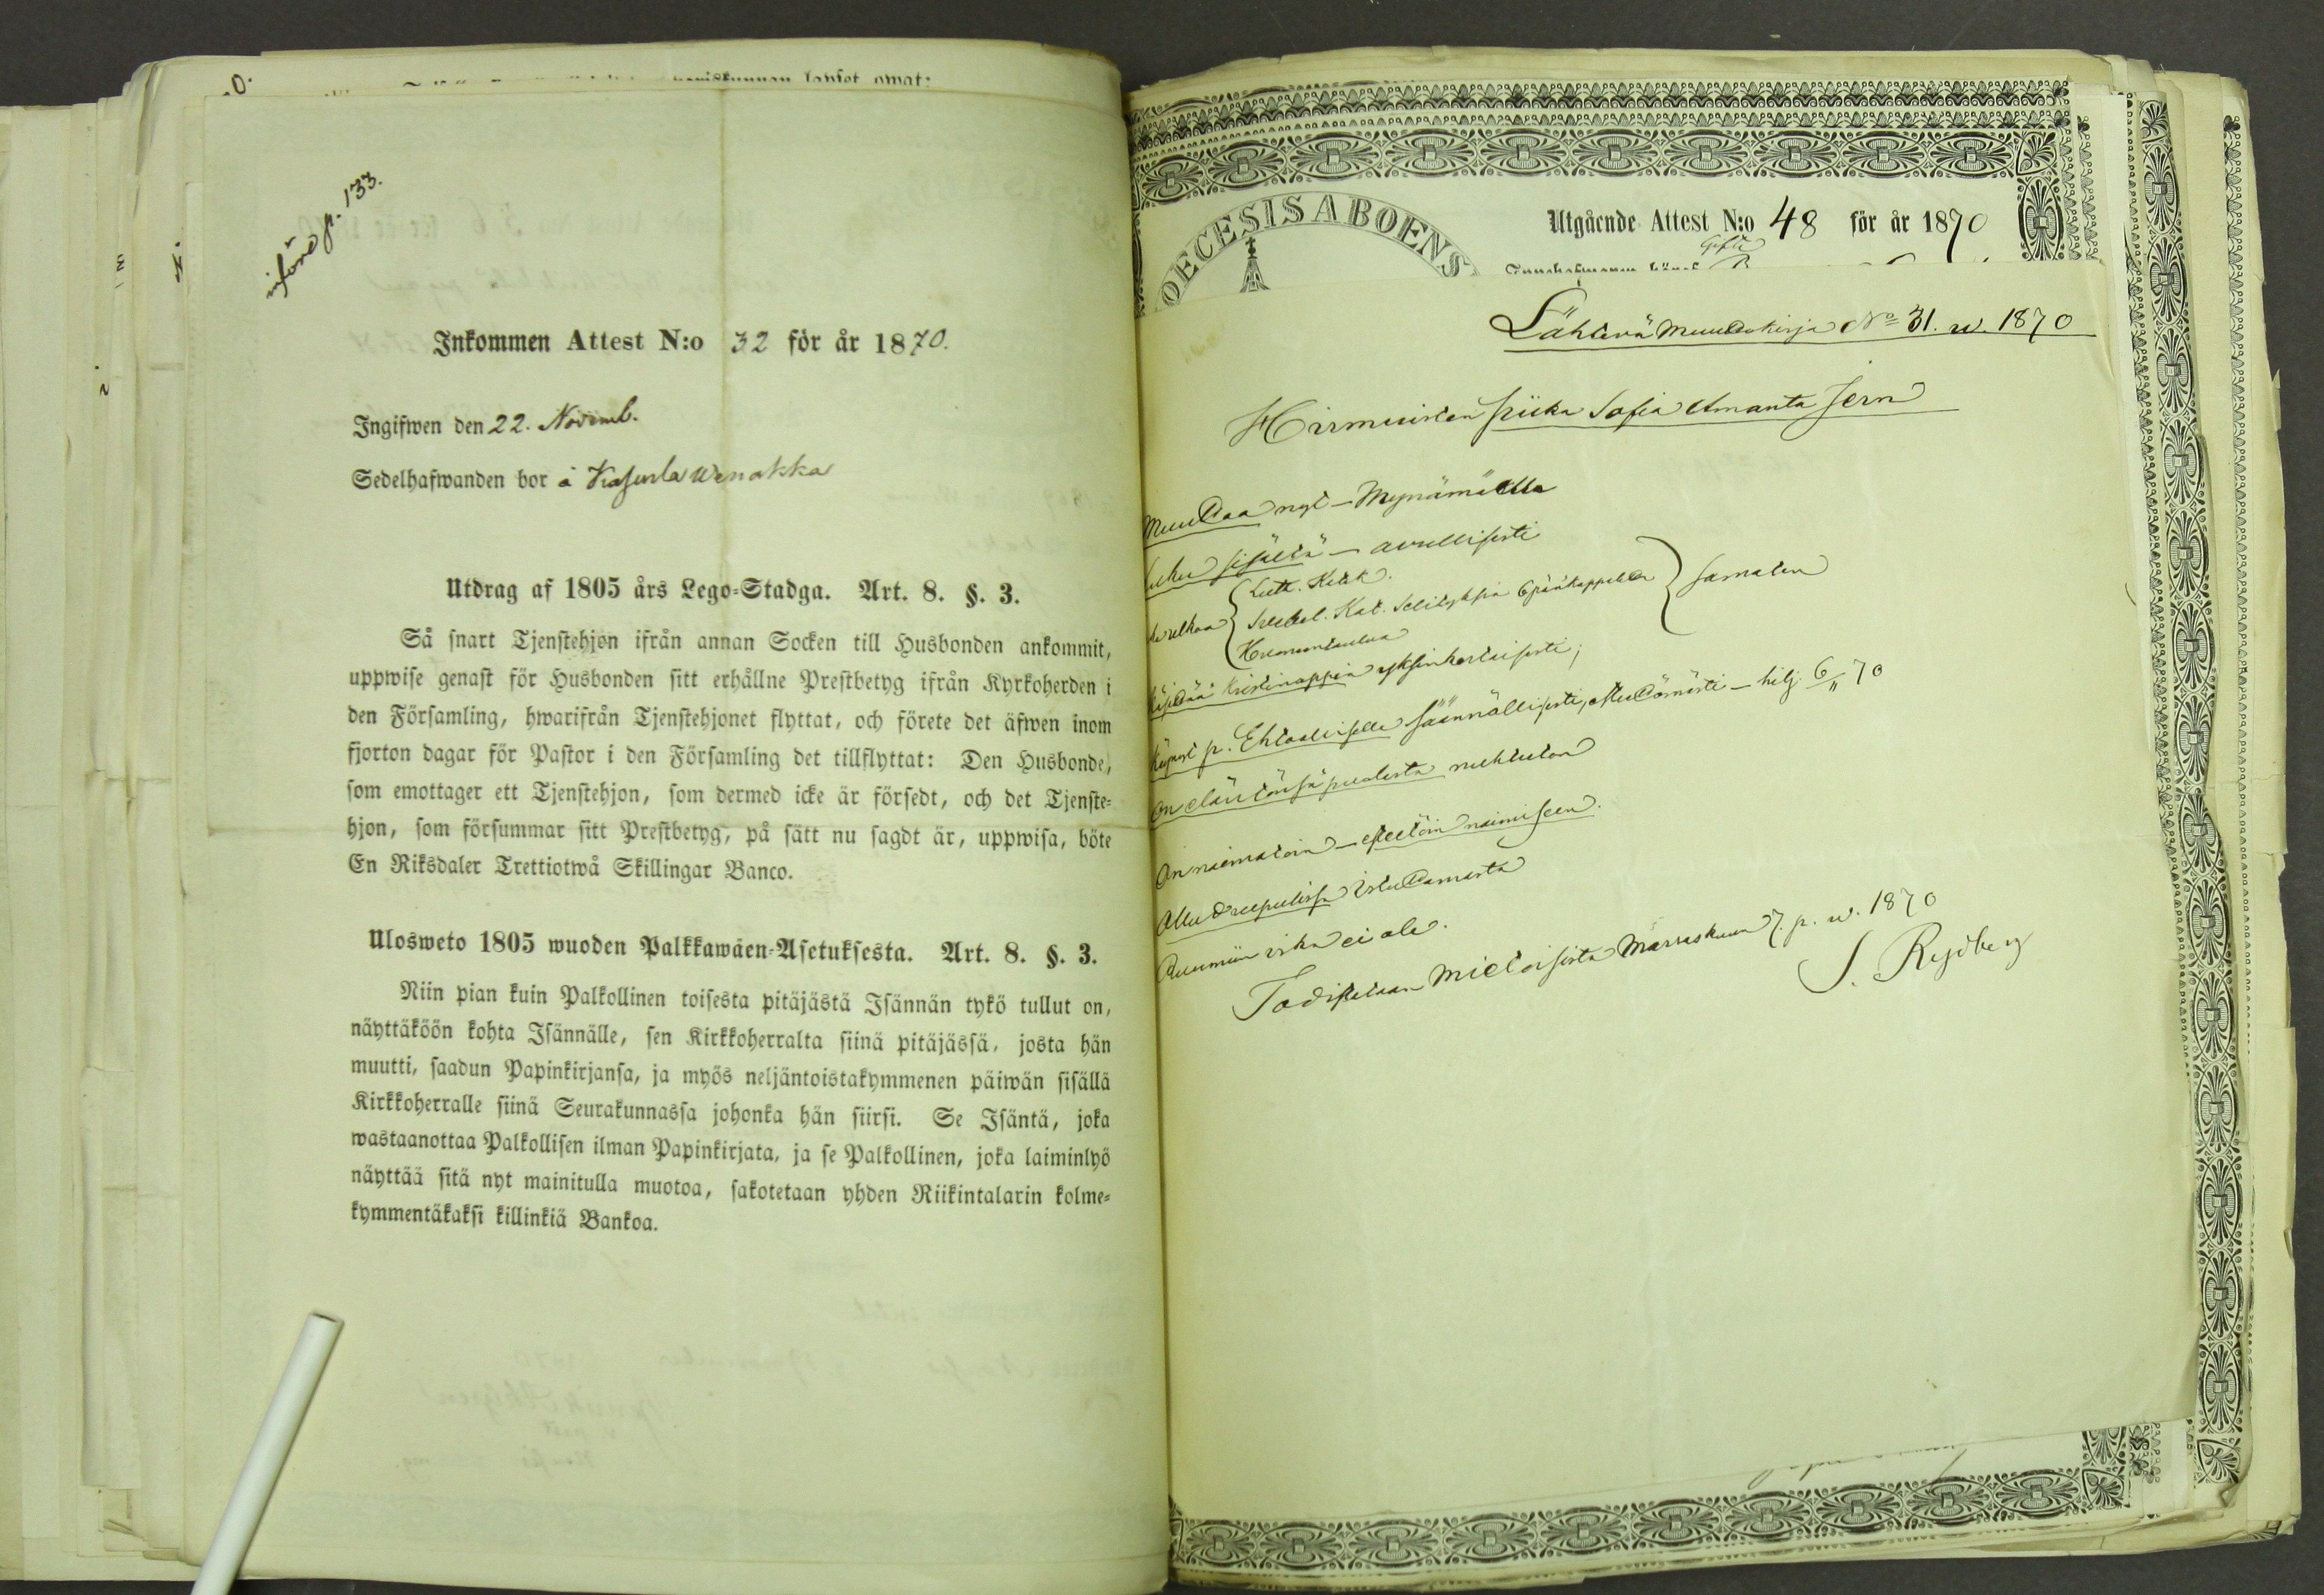 införd p. 133.
Inkommen Attest N:o 32 för år 1870.
Ingifwen den 22. Novemb.
Sedelhafwanden bor å Kasurla Wenakka
Utdrag af 1805 års Lego-Stadga. Art. 8. §. 3.
Så snart Tjenstehjon ifrån annan Socken till Husbonden ankommit,
uppwise genast för Husbonden sitt erhållne Prestbetyg ifrån Kyrkoherden i
den Församling, hwarifrån Tjenstehjonet flyttat, och förete det äfwen inom
fjorton dagar för Pastor i den Församling det tillflyttat: Den Husbonde,
som emottager ett Tjenstehjon, som dermed icke är försedt, och det Tjenste-
hjon, som försummar sitt Prestbetyg, på sätt nu sagdt är, uppwisa, böte
En Riksdaler Trettiotwå Skillingar Banco.
Ulosweto 1805 wuoden Palkkawäen-Asetuksesta. Art. 8. §. 3.
Niin pian kuin Palkollinen toisesta pitäjästä Isännän tykö tullut on,
näyttäköön kohta Isännälle, sen Kirkkoherralta siinä pitäjässä, josta hän
muutti, saadun Papinkirjansa, ja myös neljäntoistakymmenen päiwän sisällä
Kirkkoherralle siinä Seurakunnassa johonka hän siirsi. Se Isäntä, joka
wastaanottaa Palkollisen ilman Papinkirjata, ja se Palkollinen, joka laiminlyö
näyttää sitä nyt mainitulla muotoa, sakotetaan yhden Riikintalarin kolme-
kymmentäkaksi killinkiä Bankoa.
OECESIS ABOENS
Utgående Attest N:o 48 för år 1870
Lähtevä Muuttokirja No 31. w. 1870
Hirmuisten piika Sofia Amanta Jern
Muuttaa nyt — Mynämäelle
Lukee sisältä — avullisesti
Luth. Katek.
Huoneentaulua
samaten
Käsittää Kristinoppia yksinkertaisesti;
Käynyt p. Ehtoollisella säännöllisesti, — 6/11 70
On elantonsa puolesta nuhteeton
On naimatoin — esteetöin naimiseen.
Ollut rippulissa istuttamasta
Ruumiin vika ei ole.
Todistetaan Mietoisista Marraskuun 7. p. w. 1870
J. Rydberg